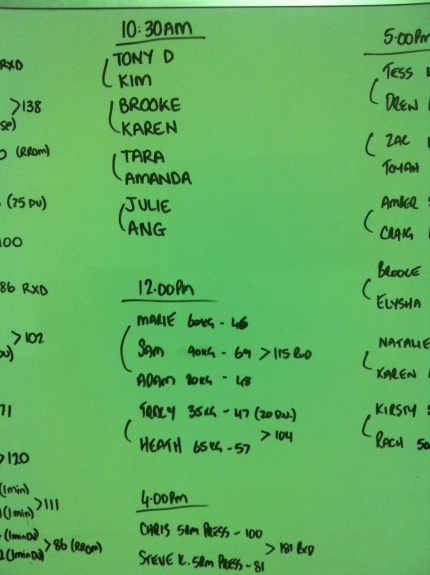 RXD
>138
(RROM)
(25 DU)
100
86 RXD
>102
71
>120
(1min)
>111
(1min)
(1minDU)
>86 (RROM)
2(1minDU)
10:30AM
TONY D
KIM
BROOKE
KAREN
TARA
AMANDA
JULIE
ANG
12.00PM
MARIE 60KG - 46
SAM 90KG - 69 >115 RXD
ADAM 80KG - 48
TRACY 35KG - 47 (20 DU.)
>104
HEATH 65KG - 57
4:00PM
CHRIS 5RM PRESS - 100
>181 RXD
STEVE K. 5RM PRESS - 81
5:00PM
TESS
DREN
ZAC
TOMAH
AMBER
CRAIG
BROOKE
ELYSHA
NATALIE
KAREN
KIRSTY
RACH 50